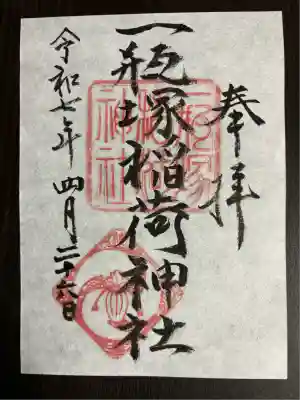 奉拝
一瓶塚稲荷神社
令和七年四月二十六日